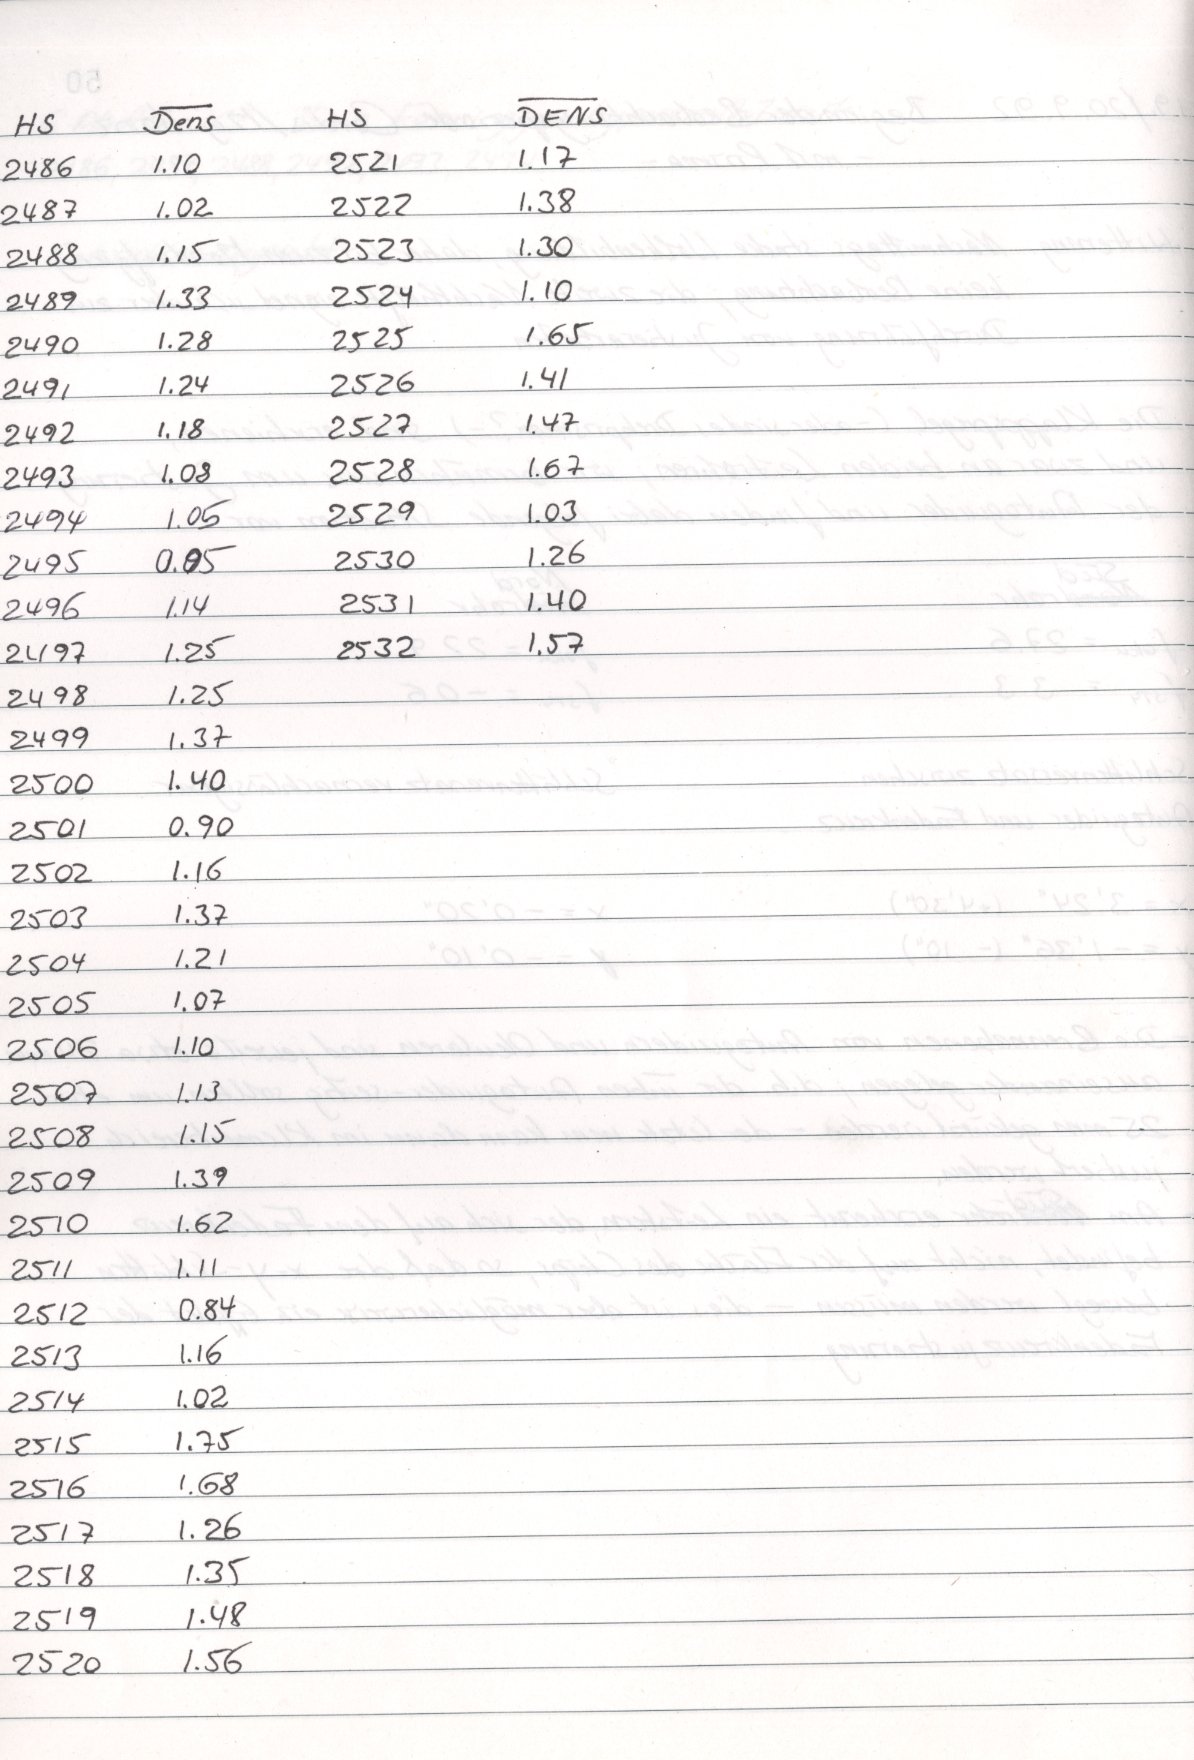 HS Dens HS DENS
2486 1.10 2521 1.17
2487 1.02 2522 1.38
2488 1.15 2523 1.30
2489 1.33 2524 1.10
2490 1.28 2525 1.65
2491 1.24 2526 1.41
2492 1.18 2527 1.47
2493 1.08 2528 1.67
2494 1.05 2529 1.03
2495 2530 1.26
2496 1.14 2531 1.40
2497 1.25 2532 1.57
2498 1.25
2499 1.37
2500 1.40
2501 0.90
2502 1.16
2503 1.37
2504 1.21
2505 1.07
2506 1.10
2507 1.13
2508 1.15
2509 1.39
2510 1.62
2511 1.11
2512 0.84
2513 1.16
2514 1.02
2515 1.75
2516 1.68
2517 1.26
2518 1.35
2519 1.48
2520 1.56